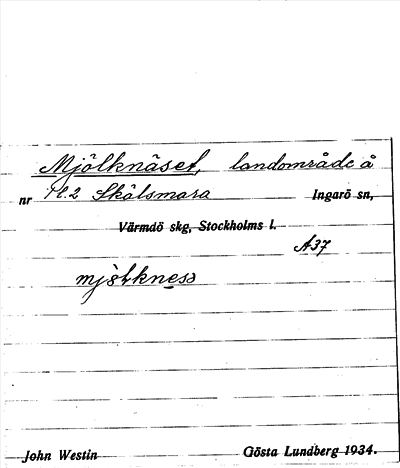 Mjölknäset, landområde å
nr 1 l.2 Skälsmara Ingarö sn,
Värmdö skg, Stockholms l.
A37
mjölkness
John Westin Gösta Lundberg 1934.